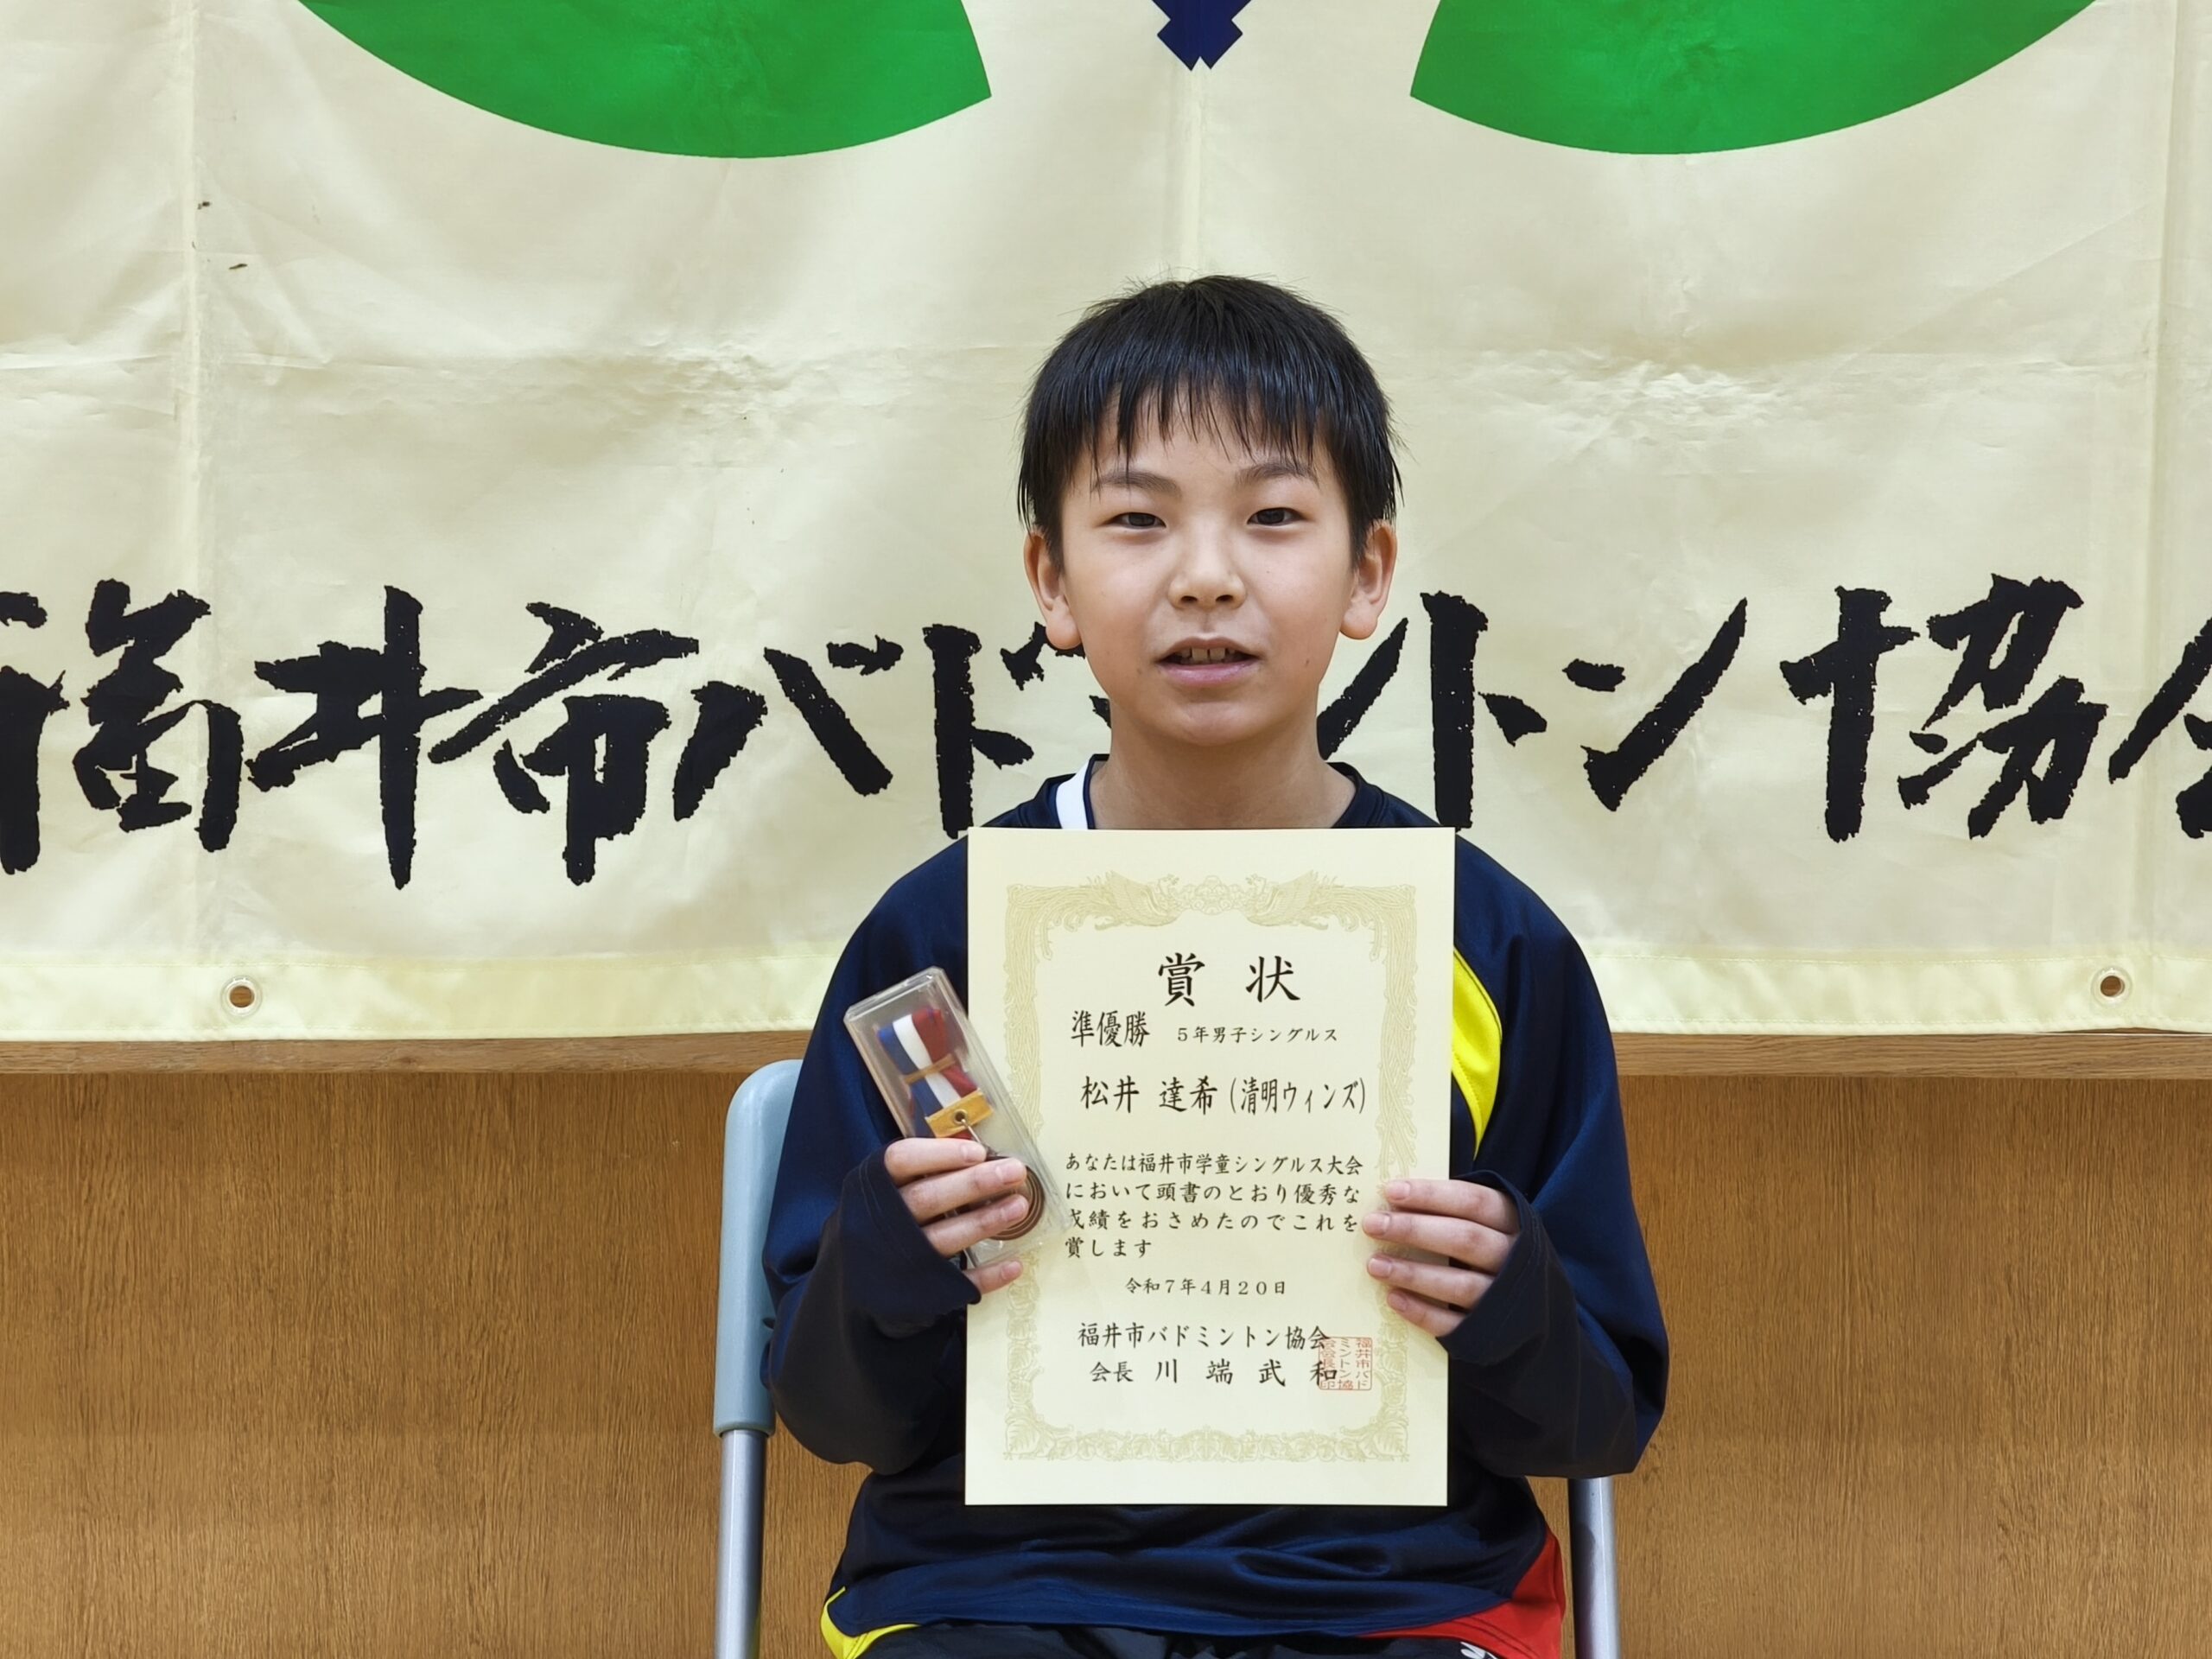 福井市バドミントン協会
賞状
準優勝 5年男子シングルス
松井 達希(清明ウィンズ)
あなたは福井市学童シングルス大会
において頭書のとおり優秀な
成績をおさめたのでこれを
賞します
令和7年4月20日
福井市バドミントン協会
会長 川端武和
福井市バド
ミントン協
会会長印